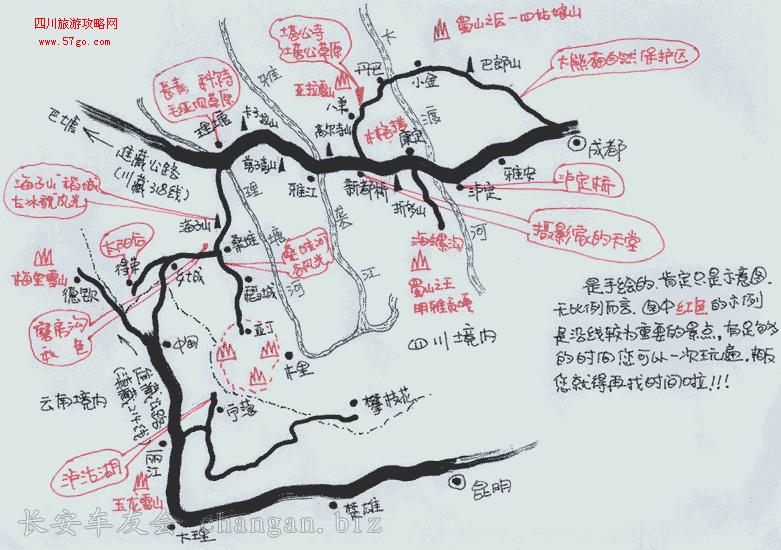 四川旅游攻略网
www.57go.com
蜀山之后—四姑娘山
塔公寺
塔公草原
雅
大
丹巴
小金
巴郎山
大熊猫自然保护区
亚拉雪山
八美
渡
康定
成都
长青 科尔寺
毛垭坝草原
理塘
卡子拉山
高尔寺山
巴塘
进藏公路
(川藏318线)
剪子弯山
雅江
新都桥
折多山
泸定
雅安
泸定桥
摄影家的天堂
海子山 稻城
古冰貌风光
海子山
理
塘
河
砻
江
河
海螺沟
蜀山之王
太阳谷
得荣
桑堆
桑堆河
谷风光
梅里雪山
德钦
乡城
稻城
磨房沟
秋 色
中甸
亚丁
木里
四川境内
是手绘的,肯定只是示意图,
无比例而言。图中红色的示例
是沿线较为重要的景点,有足够
的时间您可以一次玩遍,相反
您就得再找时间啦!!!
云南境内
宁蒗
攀枝花
泸沽湖
丽江
玉龙雪山
大理
楚雄
昆明
长安车友会 changan.biz